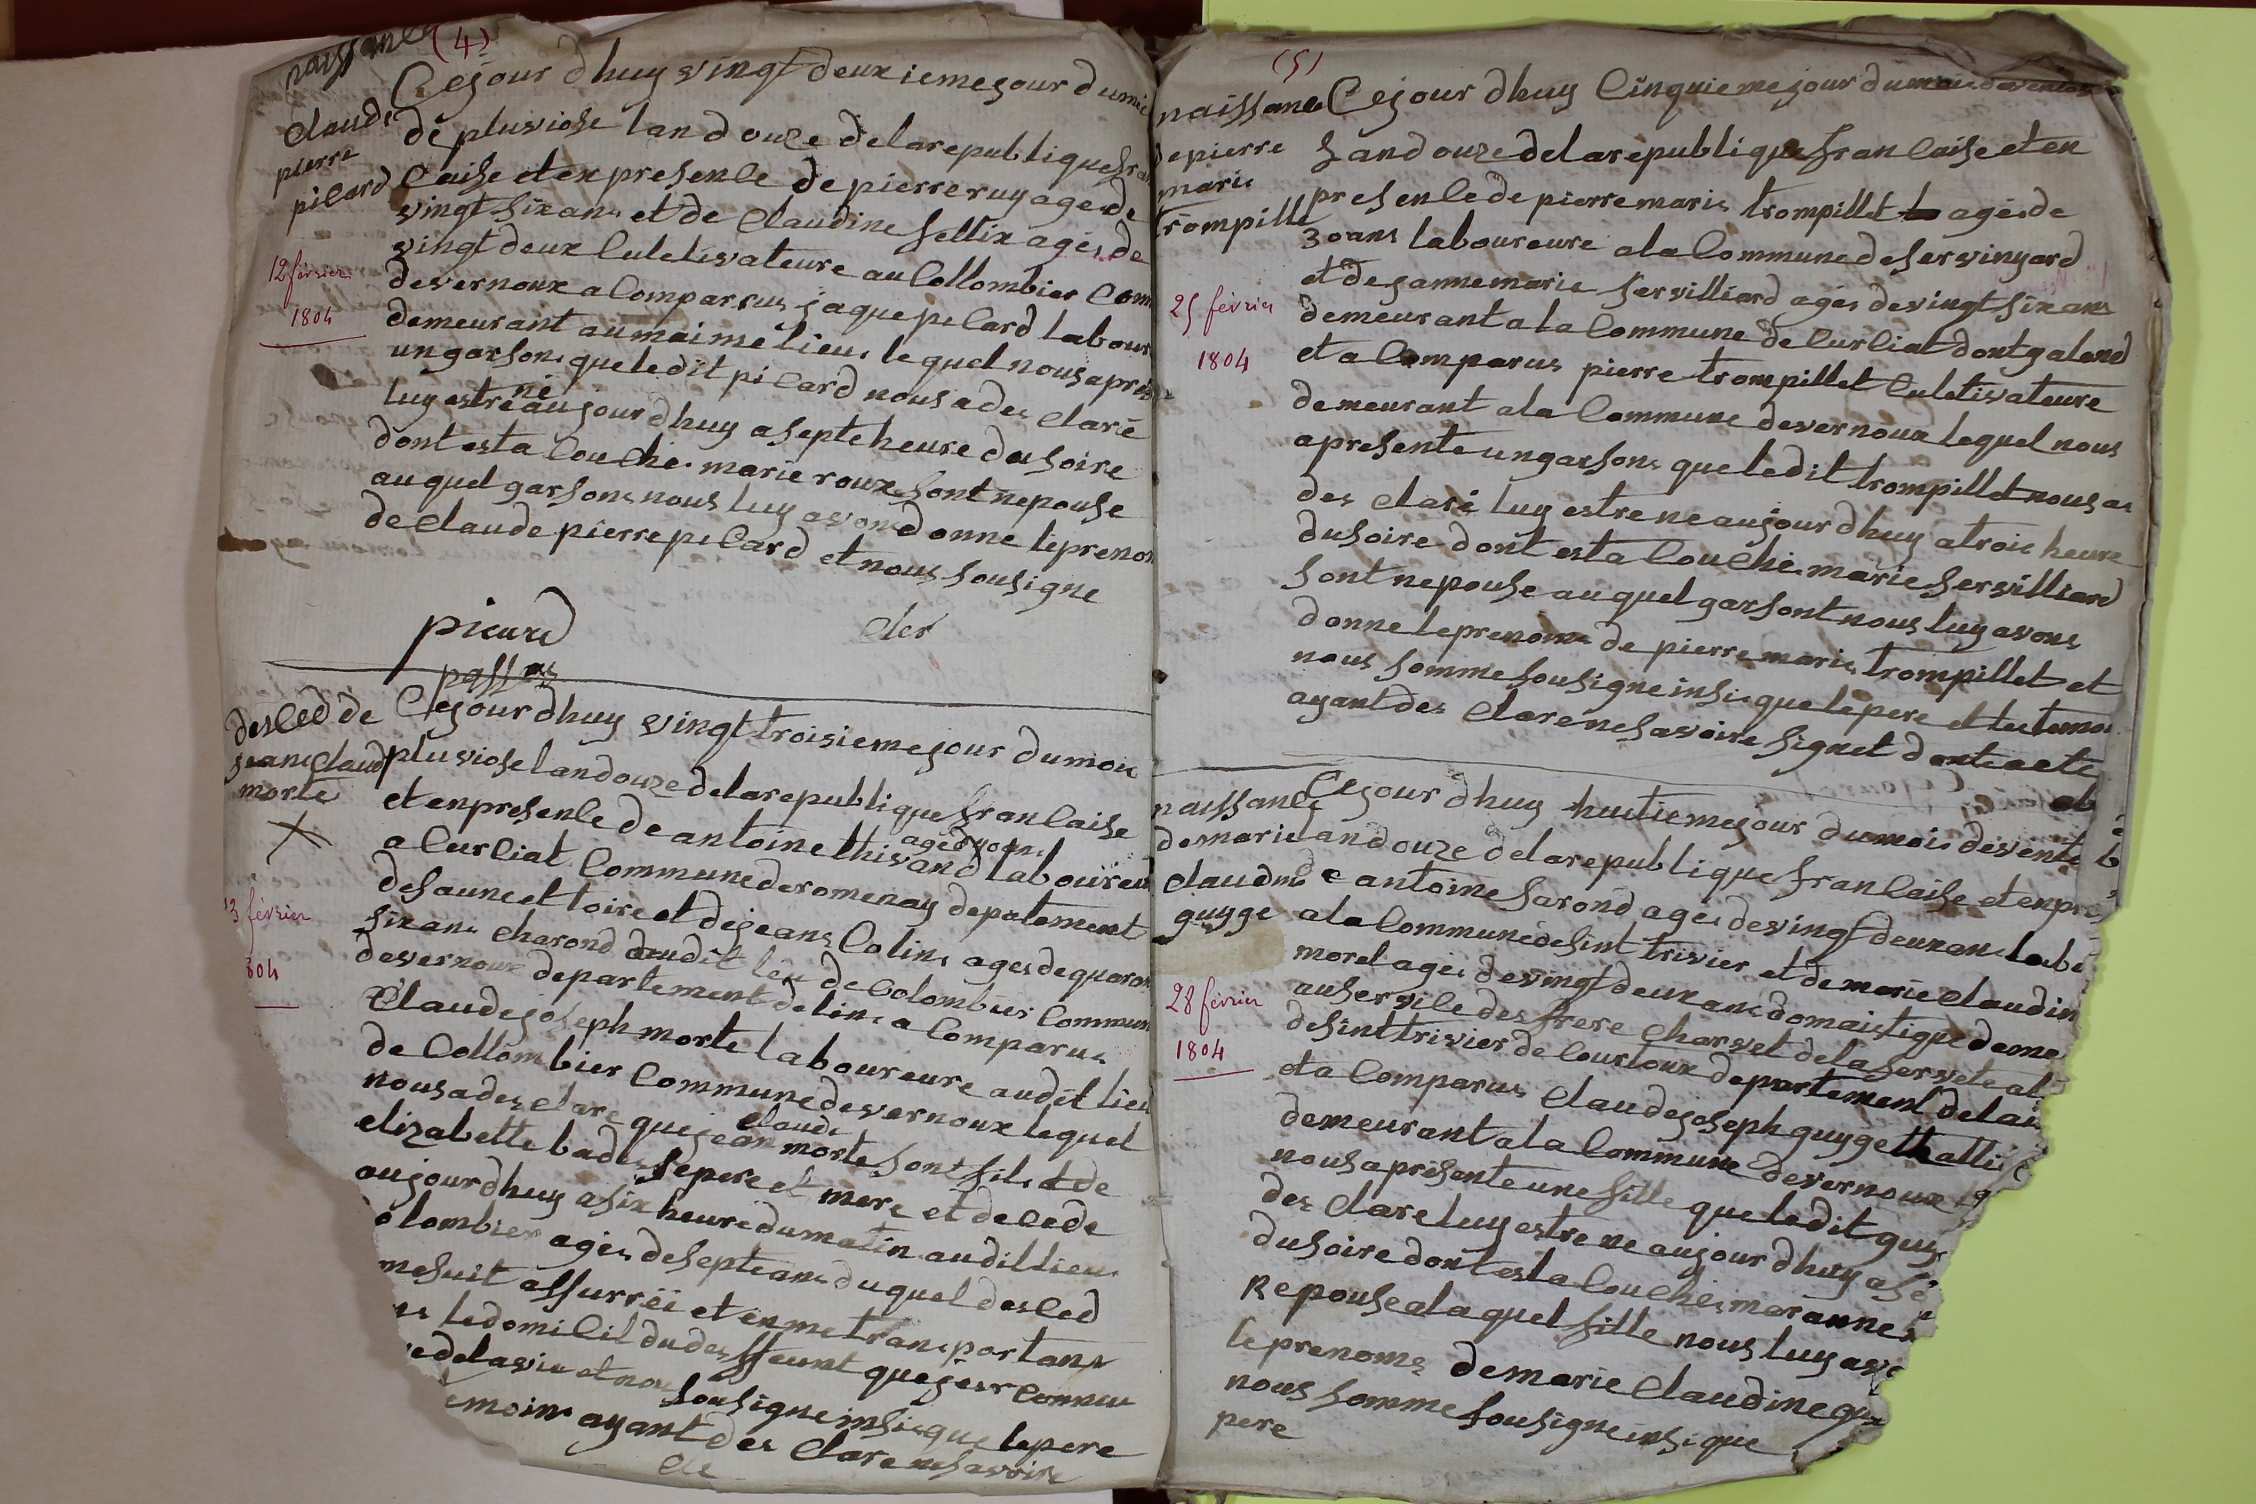 (4)
naissance
Claude
pierre
picard
12 février
1804
Cejour dhuy vingt deuxiemejour dumoi
de pluviose lan douze delarepubliquefran
Caise et en presence de pierre ruy ages de
vingt six ans et de Claudine fellix ages de
vingt deux Culetivateure au Collombier Com
devernoux a Comparrus jaque picard labour
demeurant au maime lieu lequel nous apris
un garson queledit picard nous a des Claré
luy estre né aujour dhuy a septe heure du soire
dont esta Couché marie roux sont nepouse
auquel garsons nous luy avons donne leprenom
de Claude pierre picard et nous sousigne
picard
desced de
jean Claud
morte
13 février
804
Cejour dhuy vingt troisiemejour dumoi
pluviose landouze delarepublique francaise
et enpresence de antoine thivand laboureu
age
a Curciat Commune deromenay depatement
de saune et loire et dejean Colin ages dequaran
six ans charond dudit lieu de Colombier Commun
devernoux departement de lin a Comparu
Claude joseph morte laboureure audit lieu
de Collombier Commune devernoux lequel
nous a des clare que jean morte sont fils et de
claude
elizabette bades sepere et mere et decede
aujourdhuy asix heure dumatin audit lieu
olombier ages desepte ans duquel desced
mesuit assurréé et enmetransportans
ledomicil dudesffeunt quejeer connu
edelavie et nou sousigne insique lepere
emoins ayant des clare nesavoire
(5)
naissance
de pierre
marie
trompille
25 février
1804
Cejour dhuy Cinquiemejour dumoi deventos
landouze delarepublique francaise et en
presence de pierre marie trompillet ages de
30 ans laboureure ala Commune deservinyard
et dejanne marie servilliard ages devingt six ans
demeurant ala Commune de Curciat dontgalond
et a Comparus pierre trompillet Culetivateure
demeurant ala Commune devernoux lequel nous
apresente un garsons que ledit trompillet nous a
des claré luy estre ne aujour dhuy atrois heure
dusoire dont esta Couché marie servilliard
sont nepouse auquel garsont nous luy avons
donne leprenoms de pierre marie trompillet et
nous somme sousigne insique lepere et lestemoi
ayant des clare nesavoire signet dontacte
naissance
demarie
claudine
guyge
28 février
1804
Cejour dhuy huitiemejour dumois devente
landouze delarepublique francaise et enpre
de antoine sarond ages devingt deux ans labo
ala Commune desint trivier et de marie claudin
morel ages devingt deux ans domaistique deme
auservice des frere charvet dela servete al
desint trivier de Courtoux departement de lai
et a Comparus Claude joseph guyge
demeurant ala Commune devernoux
nous apresente une fille queledit guy
des clare luy estre ne aujour dhuy a
dusoire dont esta Couché marianne
nepouse ala quel fille nous luy avo
leprenoms demarie Claudine gu
nous somme sousigne insique
pere